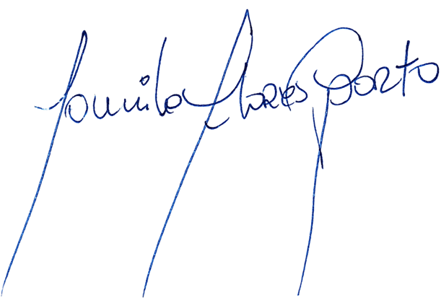 Camila Flores Porto